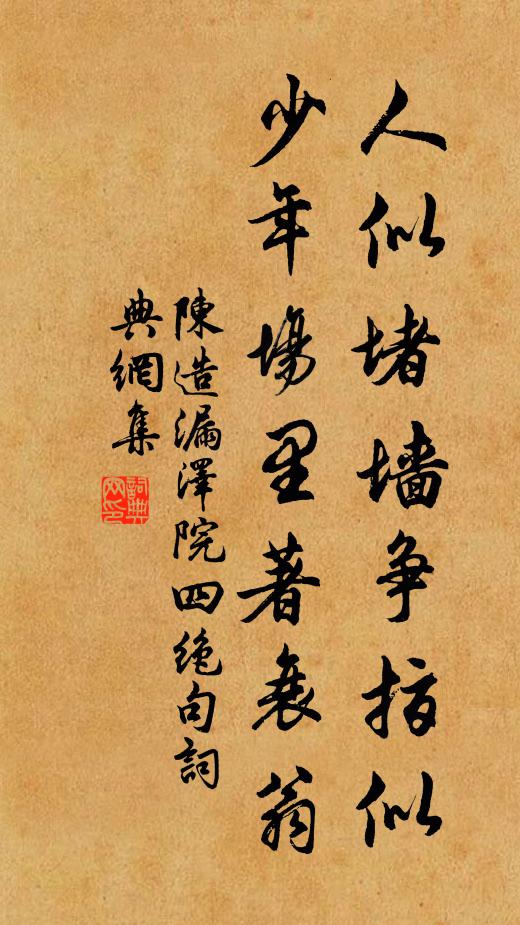 人似堵墙争指似
少年場里著衰翁
陳造漏澤院四绝句詞
典網集
詞典
网印